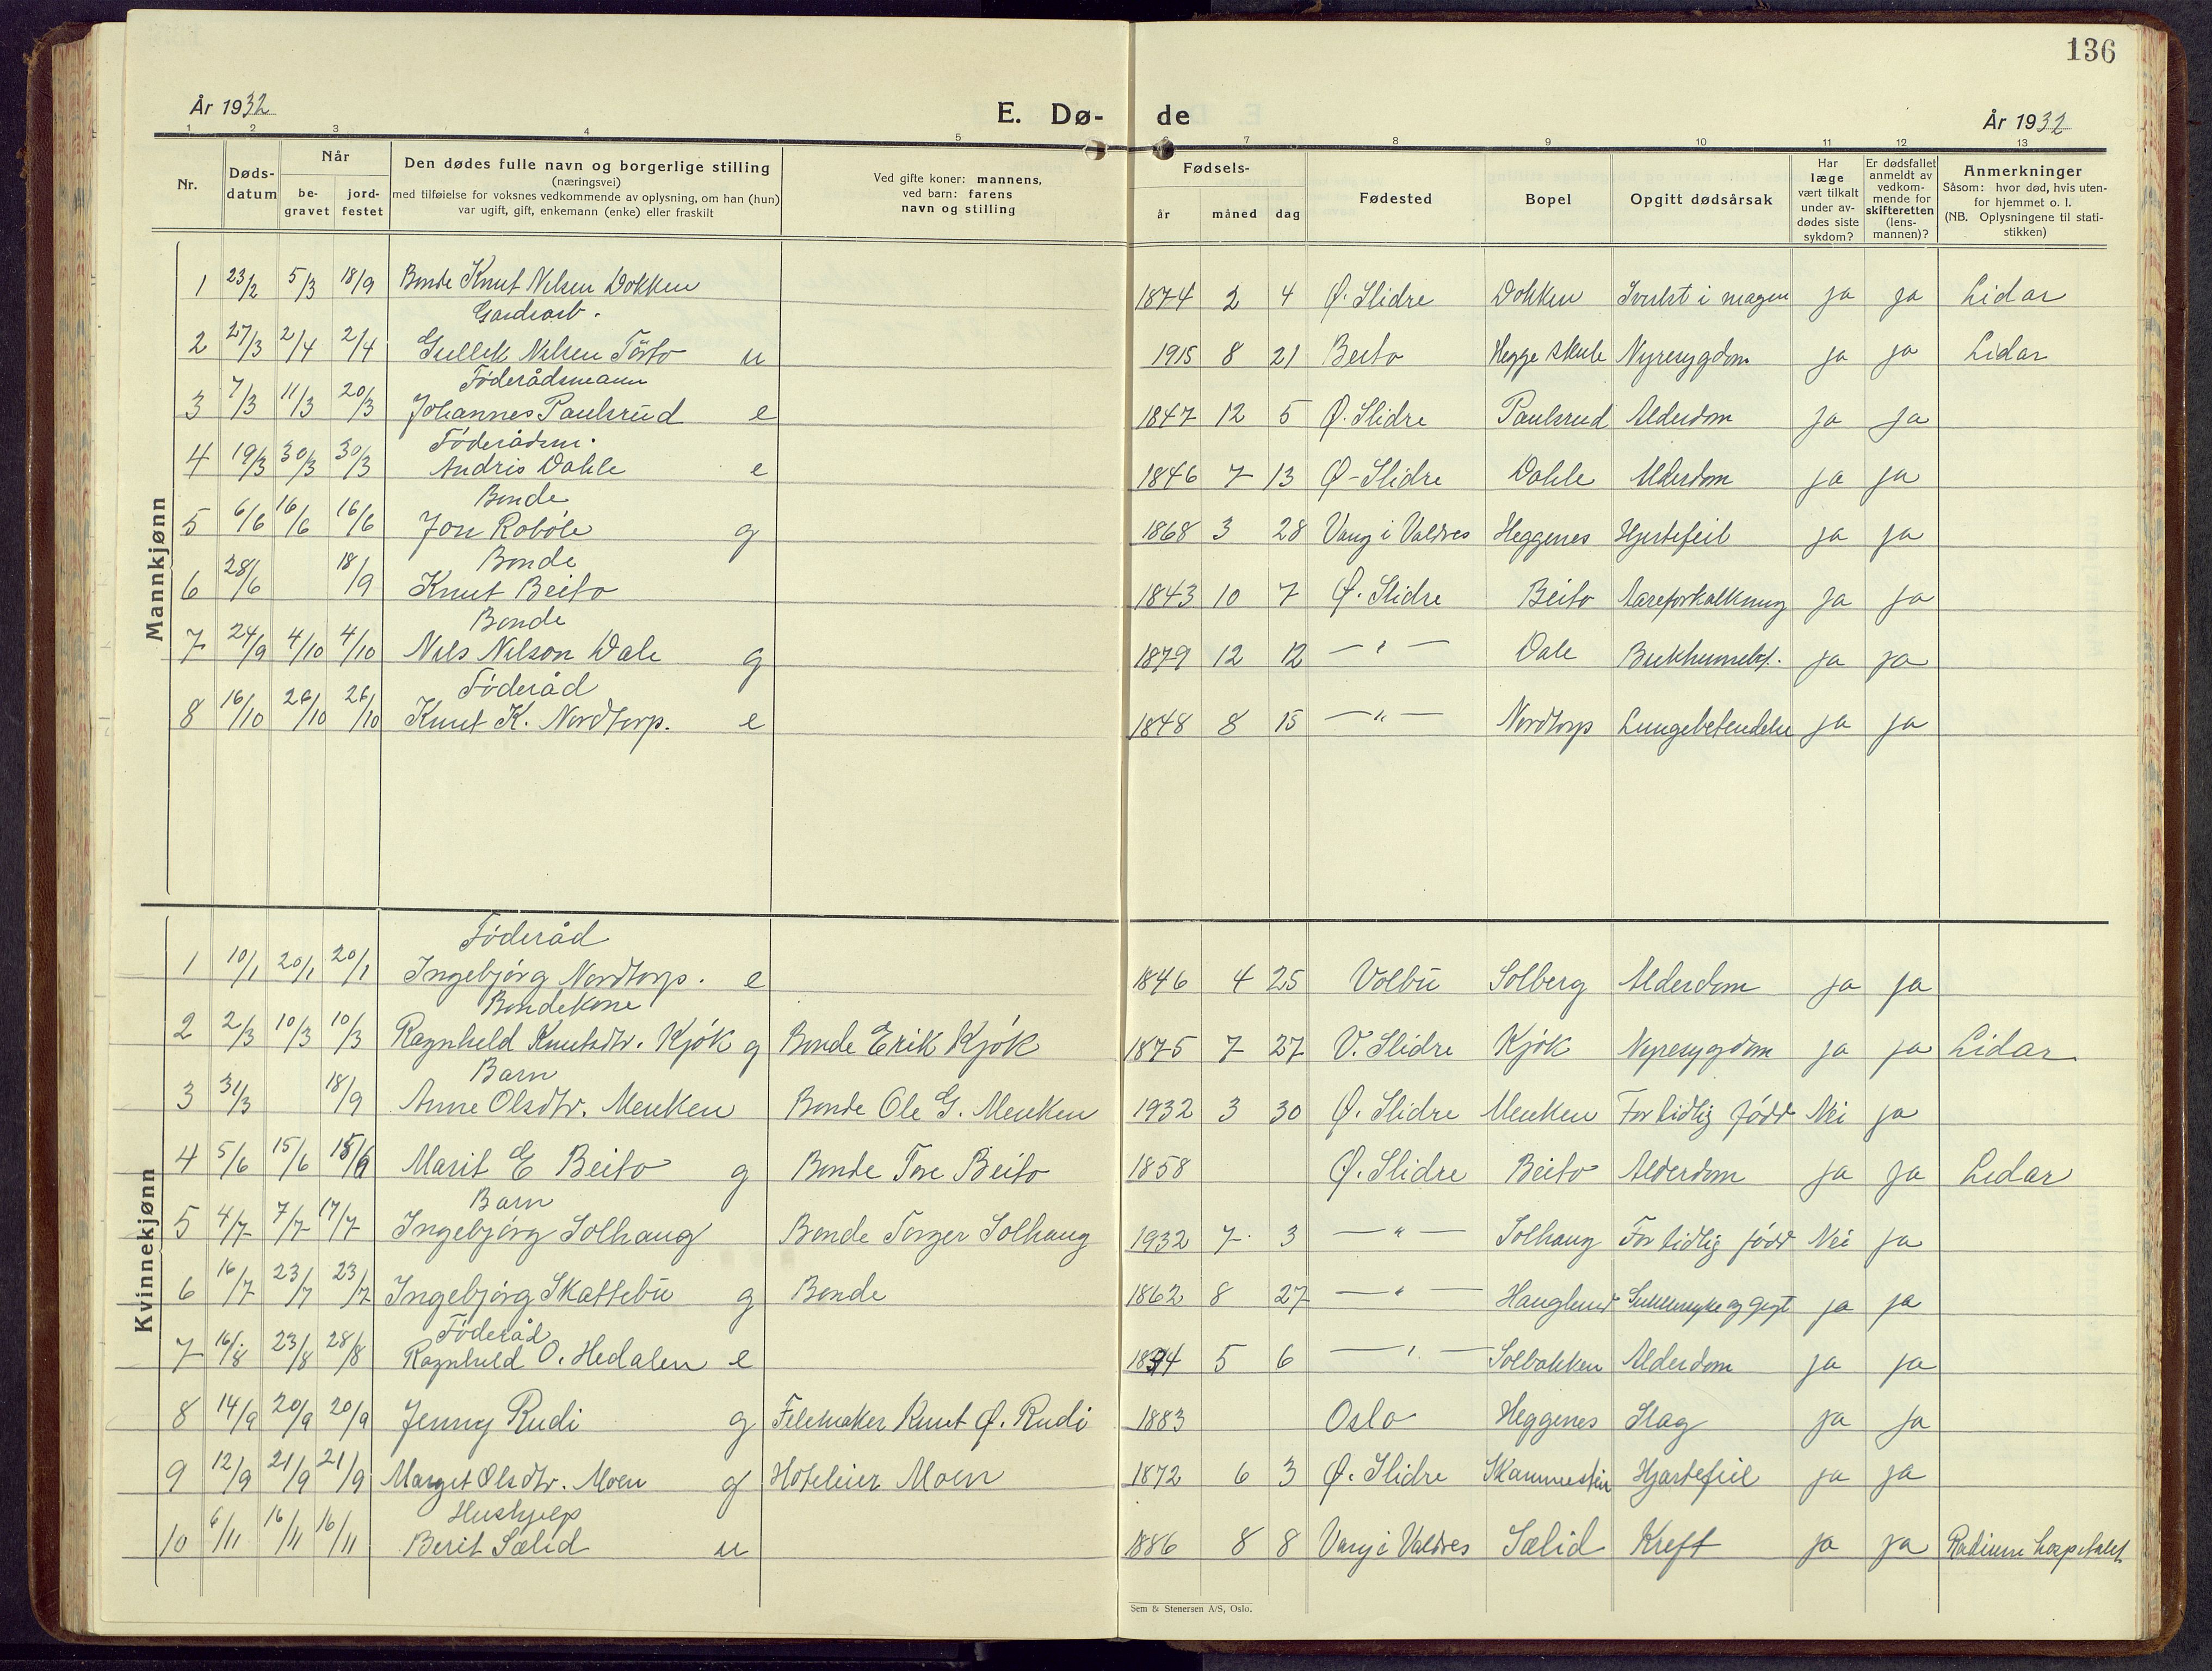 136
År 1932
E. Dø- de
År 1932
1 2 3 4 5 6 7 8 9 10 11 12 13
Nr.
Døds-
datum
Når
be-
gravet
jord-
festet
Den dødes fulle navn og borgerlige stilling
(næringsvei)
med tilføielse for voksnes vedkommende av oplysning, om han (hun)
var ugift, gift, enkemann (enke) eller fraskilt
Ved gifte koner: mannens,
ved barn: farens
navn og stilling
Fødsels-
år måned dag
Fødested
Bopel
Opgitt dødsårsak
Har
læge
vært tilkalt
under av-
dødes siste
sykdom?
Er dødsfallet
anmeldt av
vedkom-
mende for
skifteretten
(lens-
mannen)?
Anmerkninger
Såsom: hvor død, hvis uten-
for hjemmet o. l.
(NB. Oplysningene til stati-
stikken)
Mannkjønn
1 23/2 5/3 18/9 Bonde Knut Nilsen Dokken 1874 2 4 Ø. Slidre Dokken i magen ja ja Lidar
Gardsarb.
2 27/3 2/4 2/4 Gullik Nilsen u 1915 8 21 Beito Hegge skule Nyresygdom ja ja Lidar
Föderådsmann
3 7/3 11/3 20/3 Johannes Paulsrud e 1847 12 5 Ø. Slidre Paulsrud Alderdom ja ja
Föderådsm.
4 19/3 30/3 30/3 Andris Dahle e 1846 7 13 Ø-Slidre Dahle Alderdom ja ja
Bonde
5 6/6 16/6 16/6 Jon Roböle g 1868 3 28 Vang i Valdres Heggenes Hjertefeil ja ja
Bonde
6 28/6 18/9 Knut Beito 1843 10 7 Ø. Slidre Beito Aareforkalkning ja ja
Bonde
7 24/9 4/10 4/10 Nils Nilson Dale g 1879 12 12 — " — Dale ja ja
Föderåd
8 16/10 26/10 26/10 Knut K. Nordtorp. e 1848 8 15 — " — Nordtorp Lungebetendelse ja ja
Kvinnekjønn
Föderåd
1 10/1 20/1 20/1 Ingebjörg Nordtorp. e 1846 4 25 Volbu Solberg Alderdom ja ja
Bondekone
2 2/3 10/3 10/3 Ragnhild Knutsdtr. Kjök g Bonde Erik Kjök 1875 7 27 V. Slidre Kjök Nyresygdom ja ja Lidar
Barn
3 31/3 18/9 Anne Olsdtr. Menken Bonde Ole G. Menken 1932 3 30 Ø. Slidre Menken For tidlig född Nei ja
4 5/6 15/6 Marit E Beito g Bonde Tore Beito 1858 Ø. Slidre Beito Alderdom ja ja Lidar
Barn
5 4/7 7/7 17/7 Ingebjörg Solhaug Bonde Torger Solhaug 1932 7 3 — " — Solhaug For tidlig född Nei ja
6 16/7 23/7 23/7 Ingebjörg Skattebu g Bonde 1862 8 27 — " — Hauglund Sukkersyke og gigt ja ja
Föderåd
7 16/8 23/8 28/8 Ragnhild O. Hedalen e 5 6 — " — Solbakken Alderdom ja ja
8 14/9 20/9 20/9 Jenny Rudi g Felemaker Knut Ø. Rudi 1883 Oslo Heggenes Slag ja ja
9 12/9 21/9 21/9 Margit Olsdtr. Moen g Hoteleier Moen 1872 6 3 Ø. Slidre Skammestein Hjertefeil ja ja
Hushjelp
10 6/11 16/11 16/11 Berit Sælid u 1886 8 8 Vang i Valdres Sælid Kreft ja ja Radium hospitalet
Sem & Stenersen A/S, Oslo.